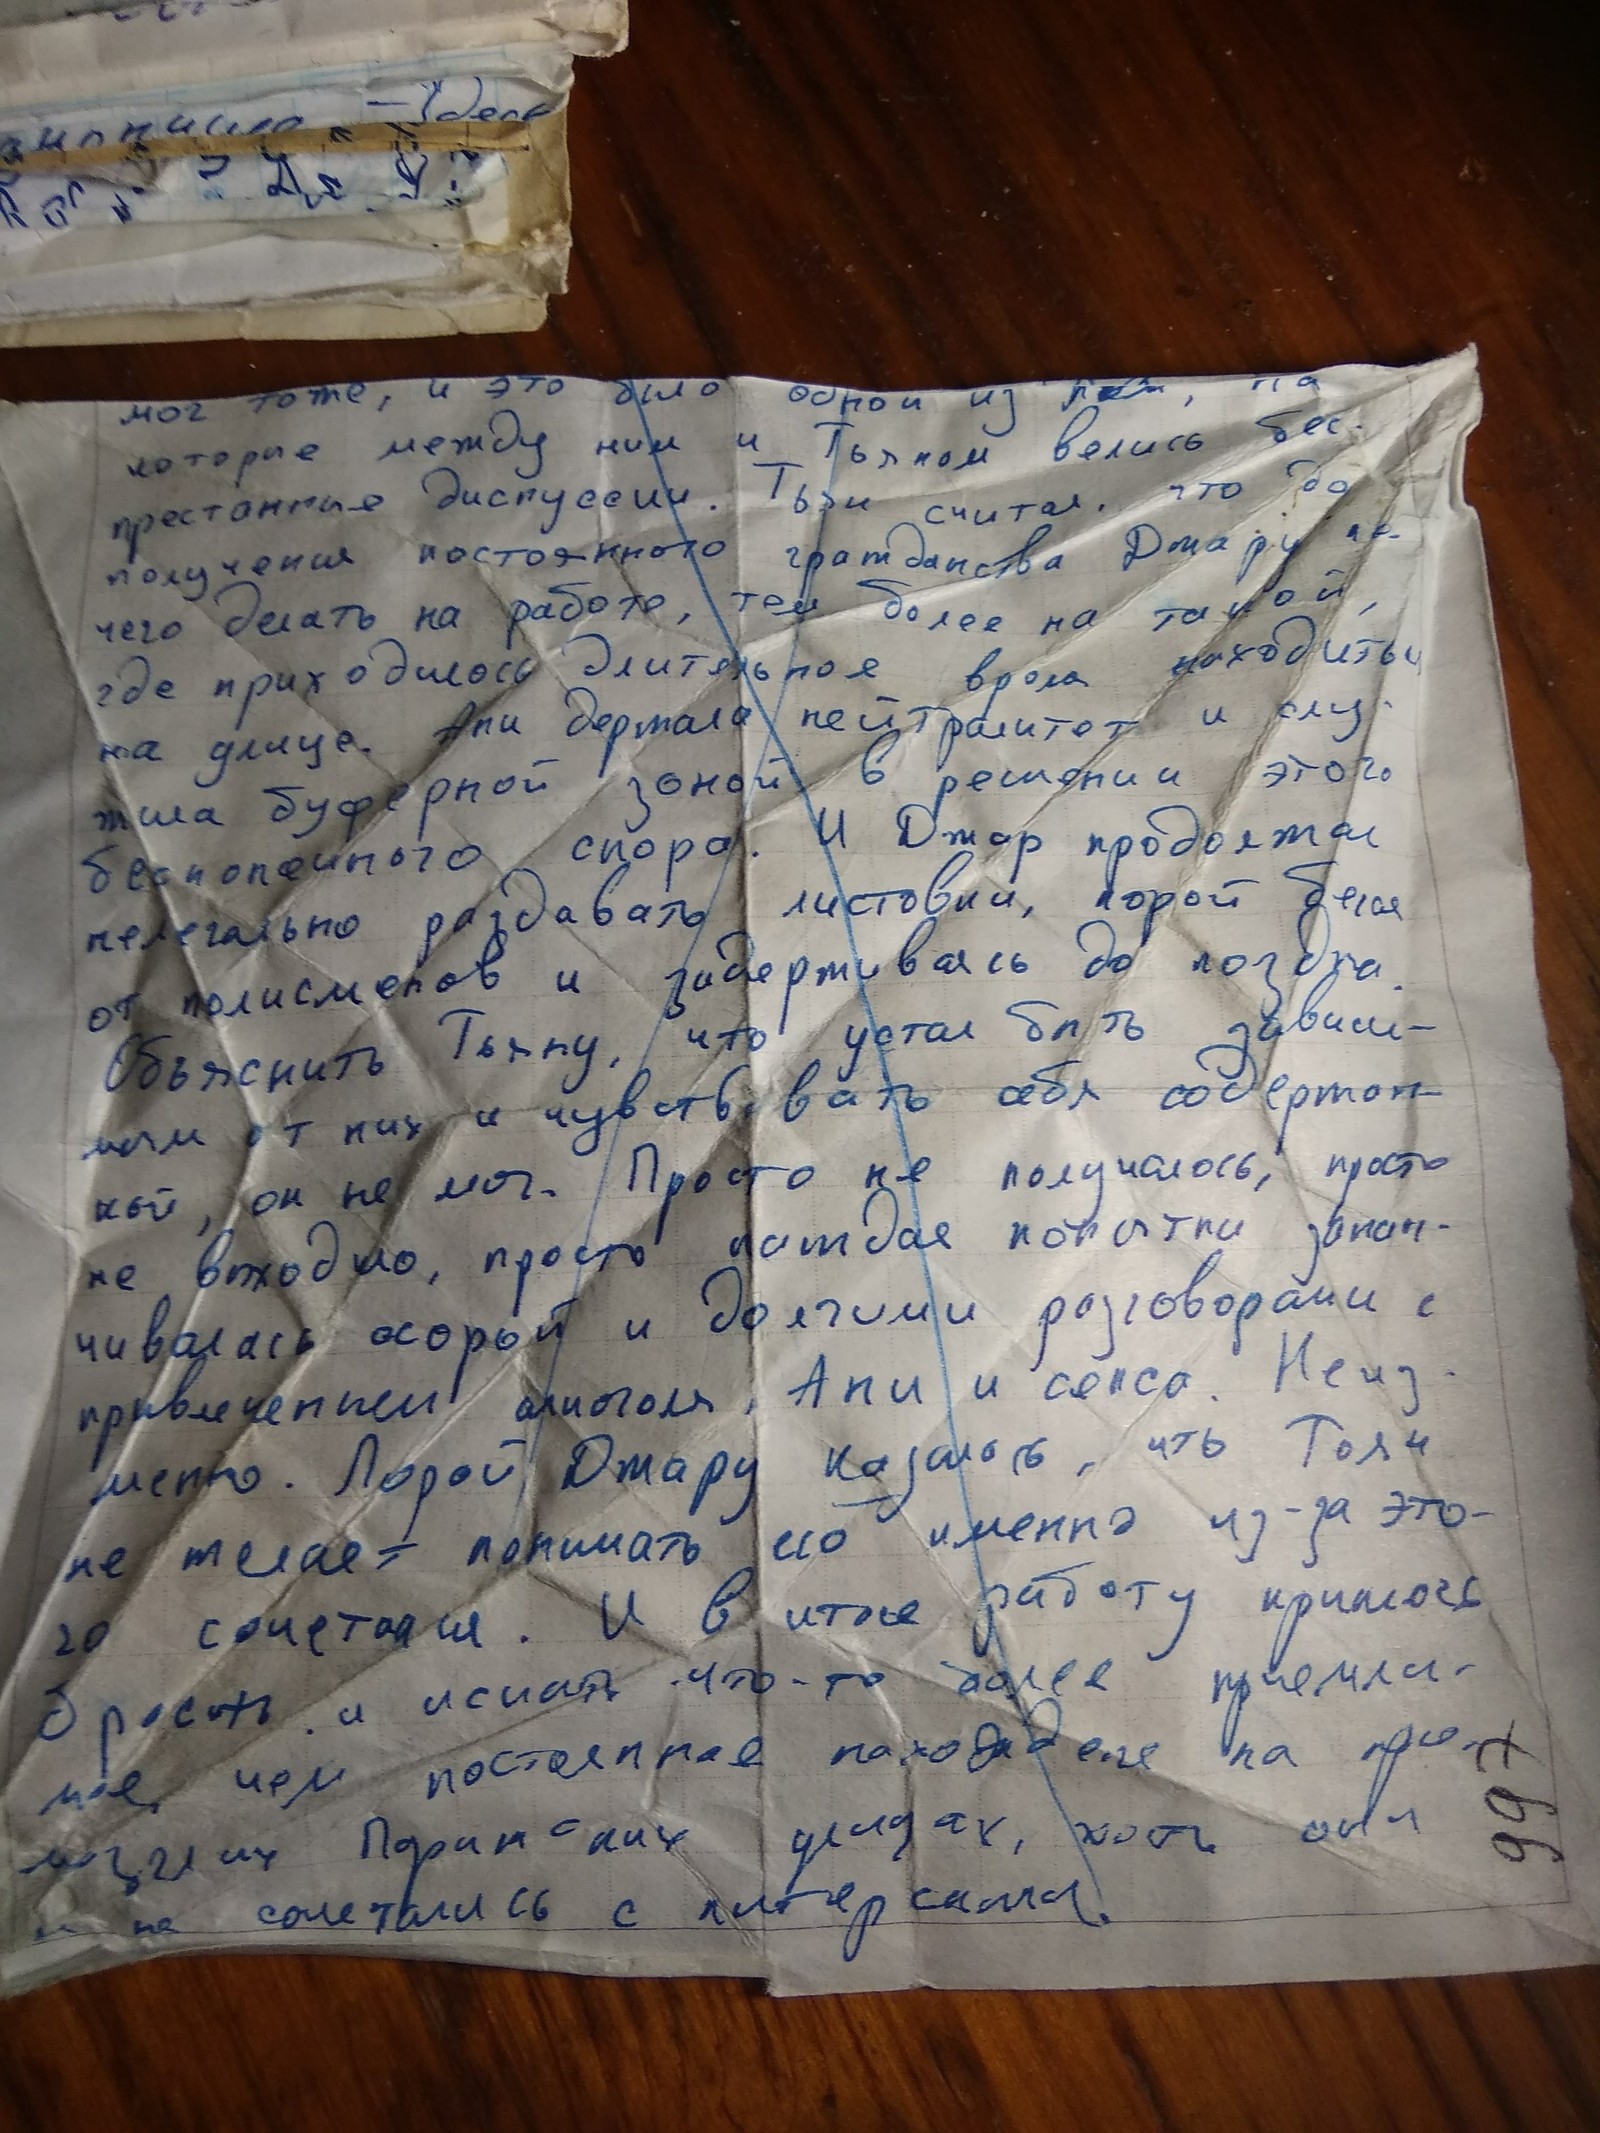 мог тоже, и это было одной из тем, на
которые между ним и Тьяном велись бес-
престанные дискуссии. Тьян считал, что до
получения постоянного гражданства Джару не-
чего делать на работе, тем более на такой,
где приходилось длительное время находиться
на улице. Ани держала нейтралитет и слу-
жила буферной зоной в решении этого
бесконечного спора. И Джар продолжал
нелегально раздавать листовки, порой бегая
от полисменов и задерживаясь до поздна.
Объяснить Тьяну, что устал быть зависи-
мым от них и чувствовать себя содержан-
кой, он не мог. Просто не получалось, просто
не выходило, просто каждая попытка закан-
чивалась ссорой и долгими разговорами с
привлечением алкоголя, Ани и секса. Неиз-
менно. Порой Джару казалось, что Тьян
не желает понимать его именно из-за это-
го сочетания. И в итоге работу пришлось
бросить и искать что-то более приемле-
мое, чем постоянное нахождение на про-
мозглых Парижских улицах, хоть они
и не сочетались с питерскими.
997